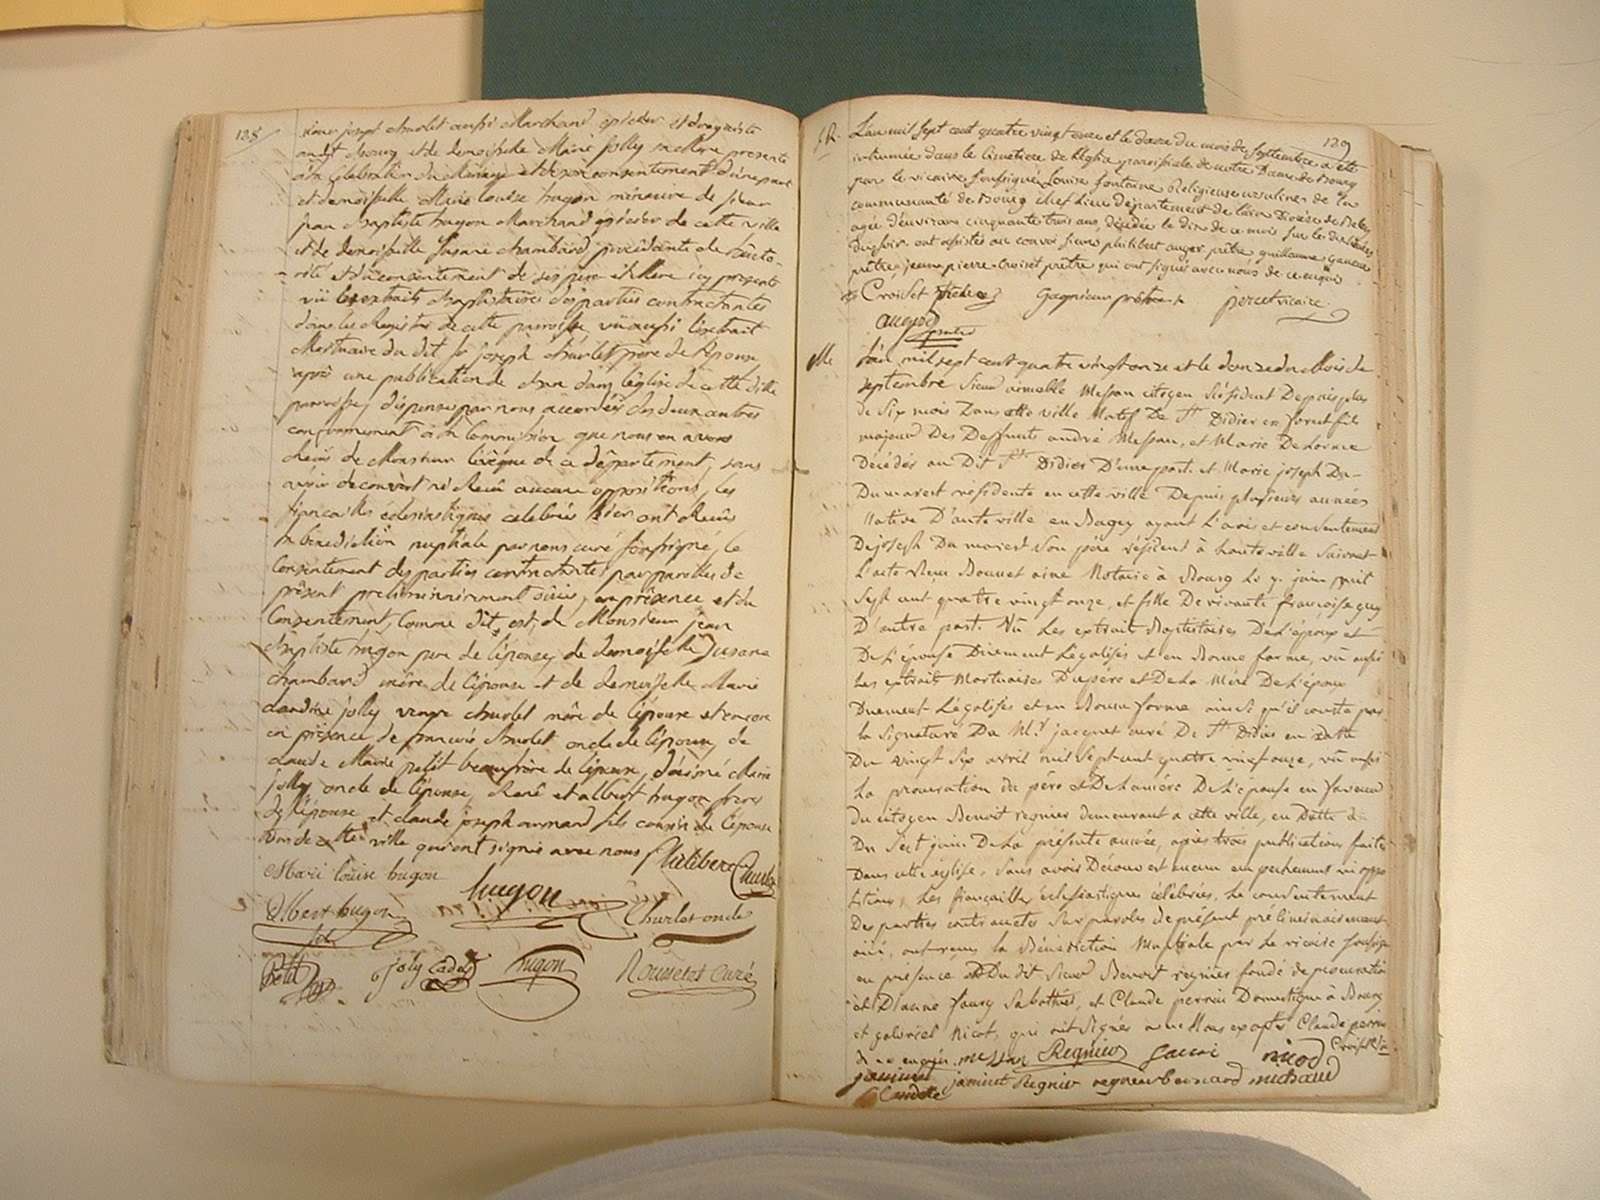 128
sieur joseph Churlet aussi Marchand épicier et droguiste
audit Bourg et de demoiselle Marie Jolly sa Mere presente
à la Celebration du Mariage et de son consentement d'une part
et demoiselle Marie Louise hugon mineure de sieur
jean Baptiste hugon Marchand épicier de cette ville
et de demoiselle Susane chambard procédante de l'auto-
rité et du consentement de ses pere et Mere icy presents
vü les extraits Baptistaires des parties contractantes
dans les Registres de cette paroisse, vü aussi l'extrait
Mortuaire du dit Sr joseph Churlet père de l'époux
après une publication de dans l'église de cette ditte
paroisse, dispense par nous accordée des deux autres
conformement à la Commission que nous en avons
Reçüe de Monsieur l'évêque de ce département, sans
avoir découvert ni Reçû aucune oppositions, les
fiançailles celebrées hier ont Reçûs
la bénédiction nuptiale par nous curé soussigné, le
Consentement des parties contractantes par paroles de
présent preliminairement ouis, en présence et du
Consentement, Comme dit est, de Monsieur jean
Baptiste hugon pere de l'épouse, de demoiselle Susane
chambard mère de l'épouse et de demoiselle Marie
claudine jolly veuve Churlet mère de l'époux et encore
en présence de francois Churlet oncle de l'époux, de
claude Marie petit beaufrère de l'époux, Marie
jolly oncle de l'époux, René et albert hugon freres
de l'épouse et claude joseph armand fils cousin de l'épouse
tous de cette ville qui ont signés avec nous Philibert Churlet
Marie louise hugon hugon
Albert hugon Churlet oncle
fils
Petit joly Cadet hugon Rousselot Curé
129
S.R. L'an mil sept cent quatre vingt onze et le douze du mois de septembre a été
inhumée dans le Cimetiere de l'église paroissiale de notre Dame de Bourg
par le vicaire soussigné Louise fontaine Religieuse ursulines de la
communauté de Bourg chef lieu département de l'ain Diocèse de Belley
agée d'environs cinquante trois ans, décédée le dix de ce mois sur les dix heures
du soir. ont assistés au convoi sieurs philibert auger prêtre guillaume Gagneur
prêtre jean pierre Croiset prêtre qui ont signés avec nous de ce enquis
Croiset prêtre Gagneur prêtre perret vicaire
auger
prêtre
M. L'an mil sept cent quatre vingt onze et le douze du Mois de
septembre Sieur aimable Messan citoyen résident Depuis plus
de Six mois Dans cette ville Natif De St Didier en forest fils
majeur Des Deffunts andré Messan, et Marie Delorme
Décédés au Dit St Didier D'une part. et Marie joseph Du-
Dumarest résidente en cette ville Depuis plusieurs années
Native D'aute ville en Bugey ayant l'avis et consentement
De joseph Dumarest Son père résident à hauteville suivant
L'acte Reçu Bonnet ainé Notaire à Bourg Le 7 juin mil
Sept cent quatre vingt onze, et fille De vivante françoise guy
D'autre part. Vü Les extraits Baptistaires De L'époux et
De L'épouse Duement Légalisés et en Bonne forme, vü aussi
Les extraits Mortuaires Du père et De La Mère De L'époux
Duement Légalisés et en Bonne forme ainsi qu'il conste par
la signature Du Mr jacquet curé De St Didier en datte
Du vingt six avril mil sept cent quatre vingt onze, vü aussi
La procuration du père et De La mère De L'épouse en faveur
du citoyen Benoit regnier demeurant a cette ville, en Datte
Du Sept juin De La présente année, après trois publications faites
Dans cette église, Sans avoir Découvert aucun empechement ni oppo
sitions, Les fiançailles éclesiastiques célébrées, Le consentement
Des parties contractantes Par paroles De présent preliminairement
ouis, ont reçus la Bénédiction Nuptiale par Le vicaire soussigné
en presence Du dit Sieur Benoit regnier fondé de procuration
et D'anne faury Sabothier, et Claude perrin Domestique à Bourg
et gabriel Nicot, qui ont Signés avec Nous excepté Claude perrin
de ce enquis. messan Regnier nicod Croiset
jaminet Regnier regnier bernard michaud
Claudette